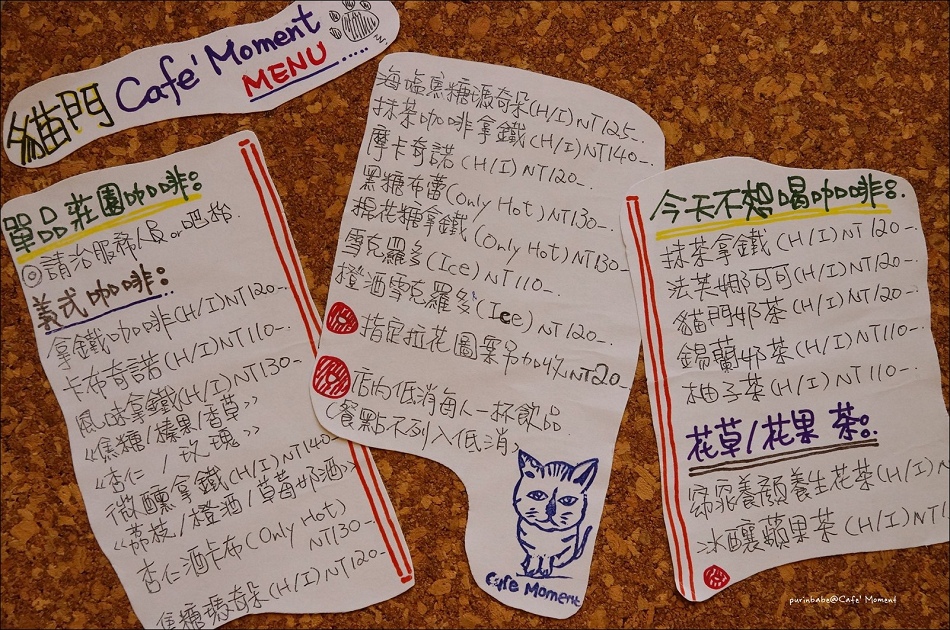 貓門 Cafe' Moment
MENU
單品莊園咖啡:
◎請洽服務人員or吧檯.
義式咖啡:
拿鐵咖啡(H/I)NT120-.
卡布奇諾(H/I)NT110-.
風味拿鐵(H/I)NT130-
《焦糖/榛果/香草》
《杏仁/玫瑰》
微醺拿鐵(H/I)NT140-
《荔枝/橙酒/草莓奶酒》
杏仁酒卡布(Only Hot)
NT130-.
焦糖瑪奇朵(H/I)NT120-
海塩焦糖瑪奇朵(H/I)NT125.
抹茶咖啡拿鐵(H/I)NT140-.
摩卡奇諾(H/I)NT120-.
黑糖布蕾(Only Hot)NT130-.
棉花糖拿鐵(Only Hot)NT130-
雪克羅多(Ice)NT110-.
橙酒雪克羅多(Ice)NT120-.
指定拉花圖案另加收NT20-
店內低消每人一杯飲品
(餐點不列入低消)
Cafe Moment
今天不想喝咖啡:.
抹茶拿鐵(H/I)NT120-.
法芙娜可可(H/I)NT120-.
貓門奶茶(H/I)NT120-.
錫蘭奶茶(H/I)NT110-.
柚子茶(H/I)NT110-.
花草/花果茶:.
窈窕養顏養生花茶(H/I)
冰釀蘋果茶(H/I)NT1
purinbabe@Cafe' Moment